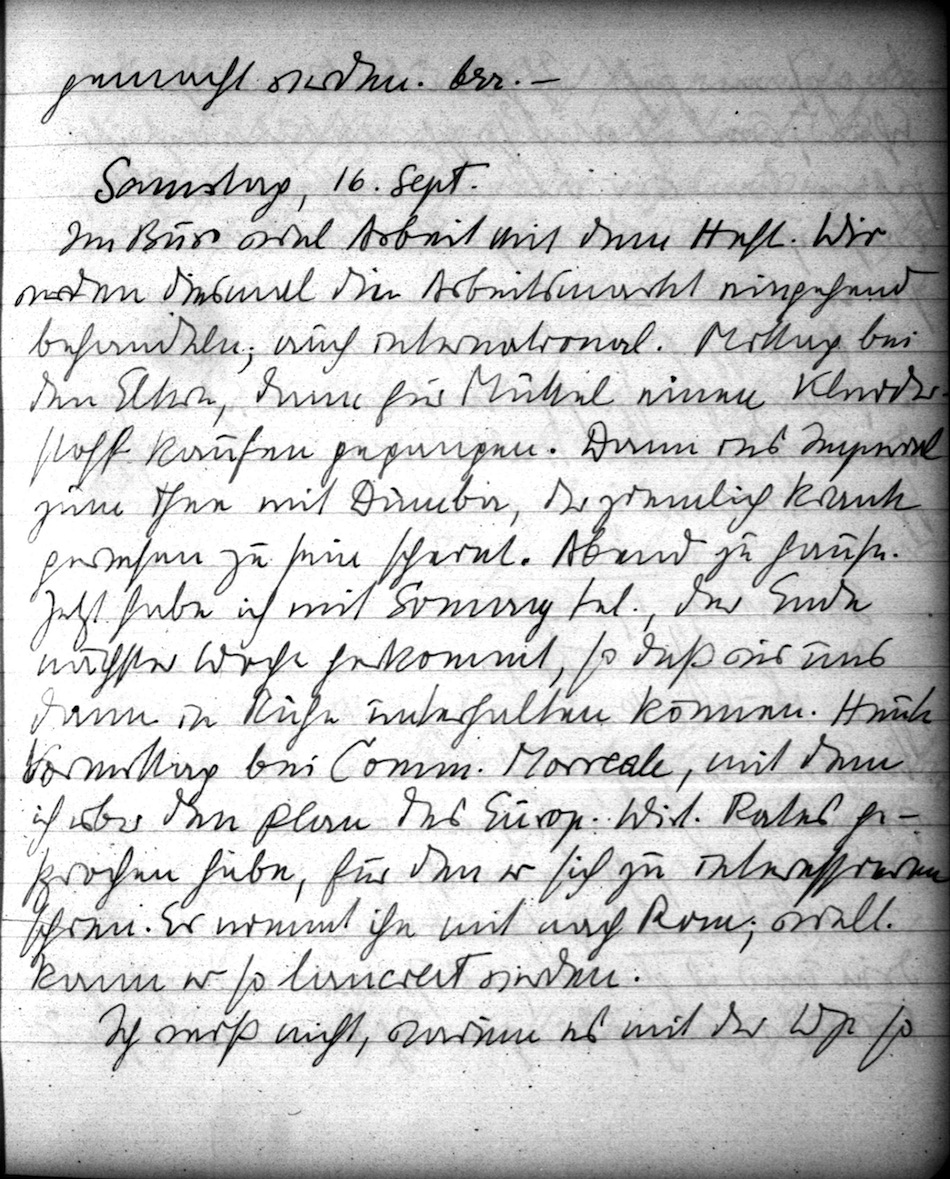 gemacht werden. brr. –
Samstag, 16. Sept.
Im Büro viel Arbeit mit dem Heft. Wir
werden diesmal den Arbeitsmarkt eingehend
behandeln; auch international. Mittag bei
den Eltern, dann für Muttel einen Kleider-
stoff kaufen gegangen. Dann ins Imperial
zum Thee mit Dumba, der ziemlich krank
gewesen zu sein scheint. Abend zu Hause.
Jetzt habe ich mit tel., der Ende
nächster Woche herkommt, so daß wir uns
dann in Ruhe unterhalten können. Heute
Vormittag bei Comm. Morreale, mit dem
ich über den Plan des Europ. Wirt. Rates ge-
sprochen habe, für den er sich zu interessieren
schien. Er nimmt ihn mit nach Rom; viell.
kann er so lanciert werden.
Ich weiß nicht, warum es mit der so